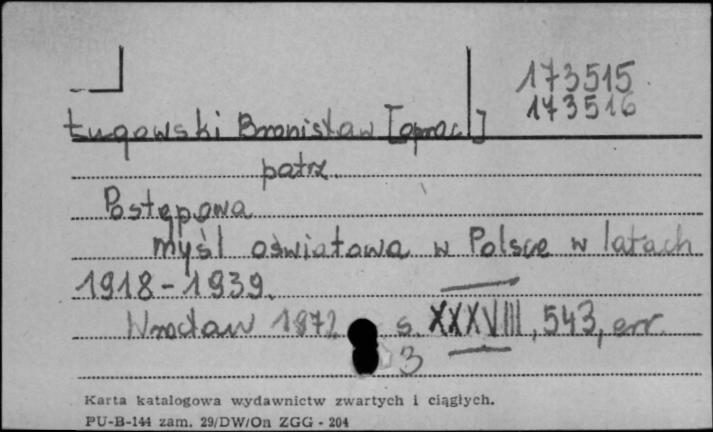 173515
173516
Ługowski Bronisław [oprac.]
patrz
Postępowa
myśl oświatowa w Polsce w latach
1918-1939.
Wrocław 1972 s. XXXVIII, 543, err.
3
Karta katalogowa wydawnictw zwartych i ciągłych.
PU-B-144 zam. 29/DW/On ZGG - 204